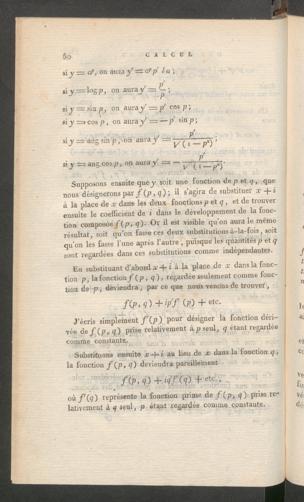 60 CALCUL
si y = aᵖ, on aura y' = aᵖ p' l a ;
si y = log p, on aura y' = p'/p ;
si y = sin p, on aura y' = p' cos p ;
si y = cos p, on aura y' = — p' sin p ;
si y = ang sin p, on aura y' = p'/√(1 — p²) ;
si y = ang cos p, on aura y' = — p'/√(1 — p²).
Supposons ensuite que y soit une fonction de p et q, que
nous désignerons par f(p, q) ; il s'agira de substituer x + i
à la place de x dans les deux fonctions p et q, et de trouver
ensuite le coefficient de i dans le développement de la fonc-
tion composée f(p, q). Or il est visible qu'on aura le même
résultat, soit qu'on fasse ces deux substitutions à-la-fois, soit
qu'on les fasse l'une après l'autre, puisque les quantités p et q
sont regardées dans ces substitutions comme indépendantes.
En substituant d'abord x + i à la place de x dans la fonc-
tion p, la fonction f(p, q), regardée seulement comme fonc-
tion de p, deviendra, par ce que nous venons de trouver,
f(p, q) + ip'f'(p) + etc.
J'écris simplement f'(p) pour désigner la fonction déri-
vée de f(p, q) prise relativement à p seul, q étant regardée
comme constante.
Substituons ensuite x + i au lieu de x dans la fonction q,
la fonction f(p, q) deviendra pareillement
f(p, q) + iq'f'(q) + etc.,
où f'(q) représente la fonction prime de f(p, q) prise re-
lativement à q seul, p étant regardée comme constante.